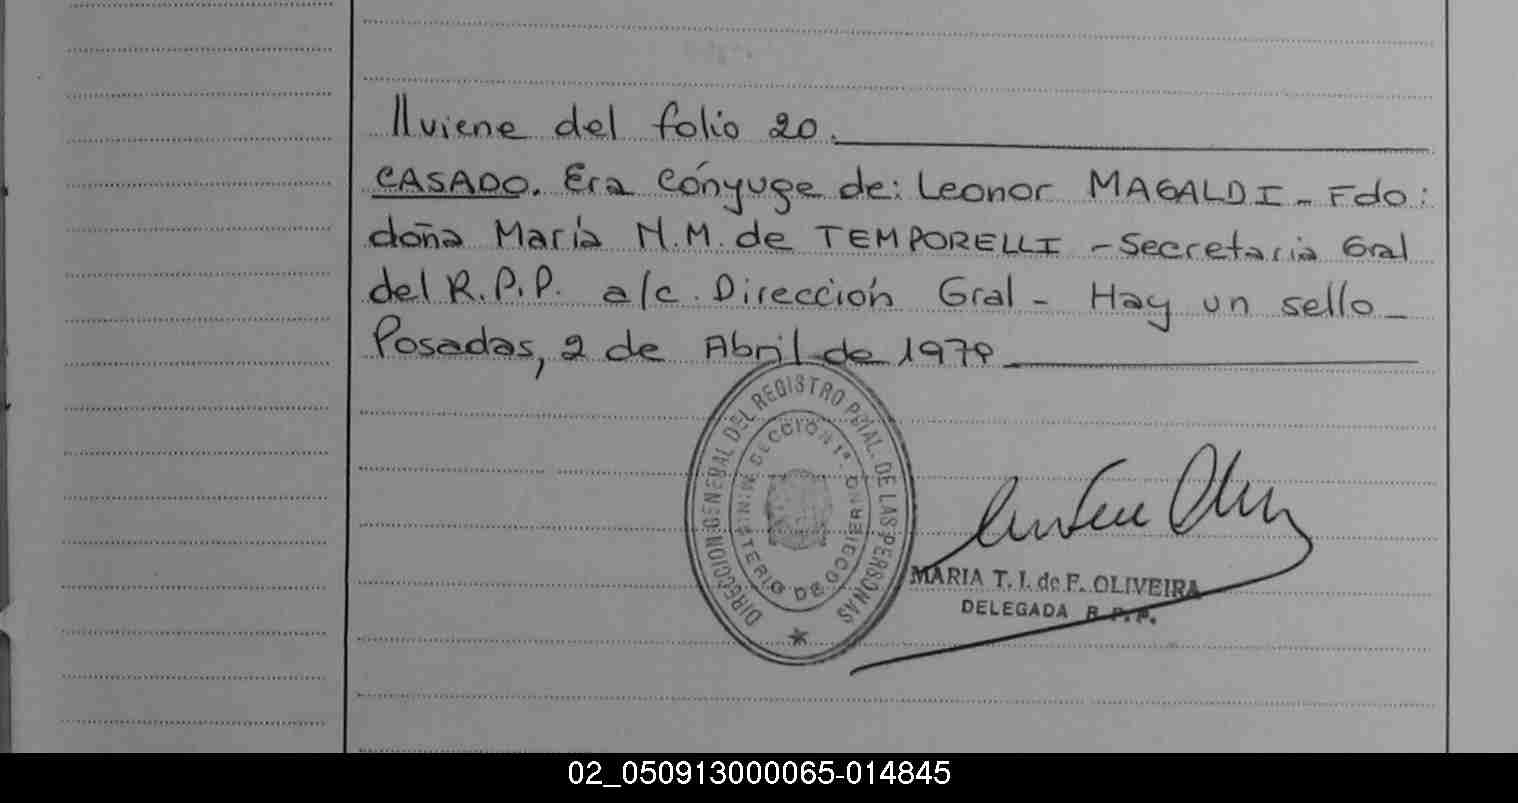 //viene del folio 20.
CASADO. Era cónyuge de: Leonor MAGALDI - Fdo:
doña María N.M. de TEMPORELLI - Secretaria Gral
del R.P.P. a/c. Dirección Gral - Hay un sello -
Posadas, 2 de Abril de 1979
DIRECCION GENERAL DEL REGISTRO PCIAL. DE LAS PERSONAS
MINISTERIO DE GOBIERNO
MARIA T. I. de F. OLIVEIRA
DELEGADA R.P.P.
02_050913000065-014845